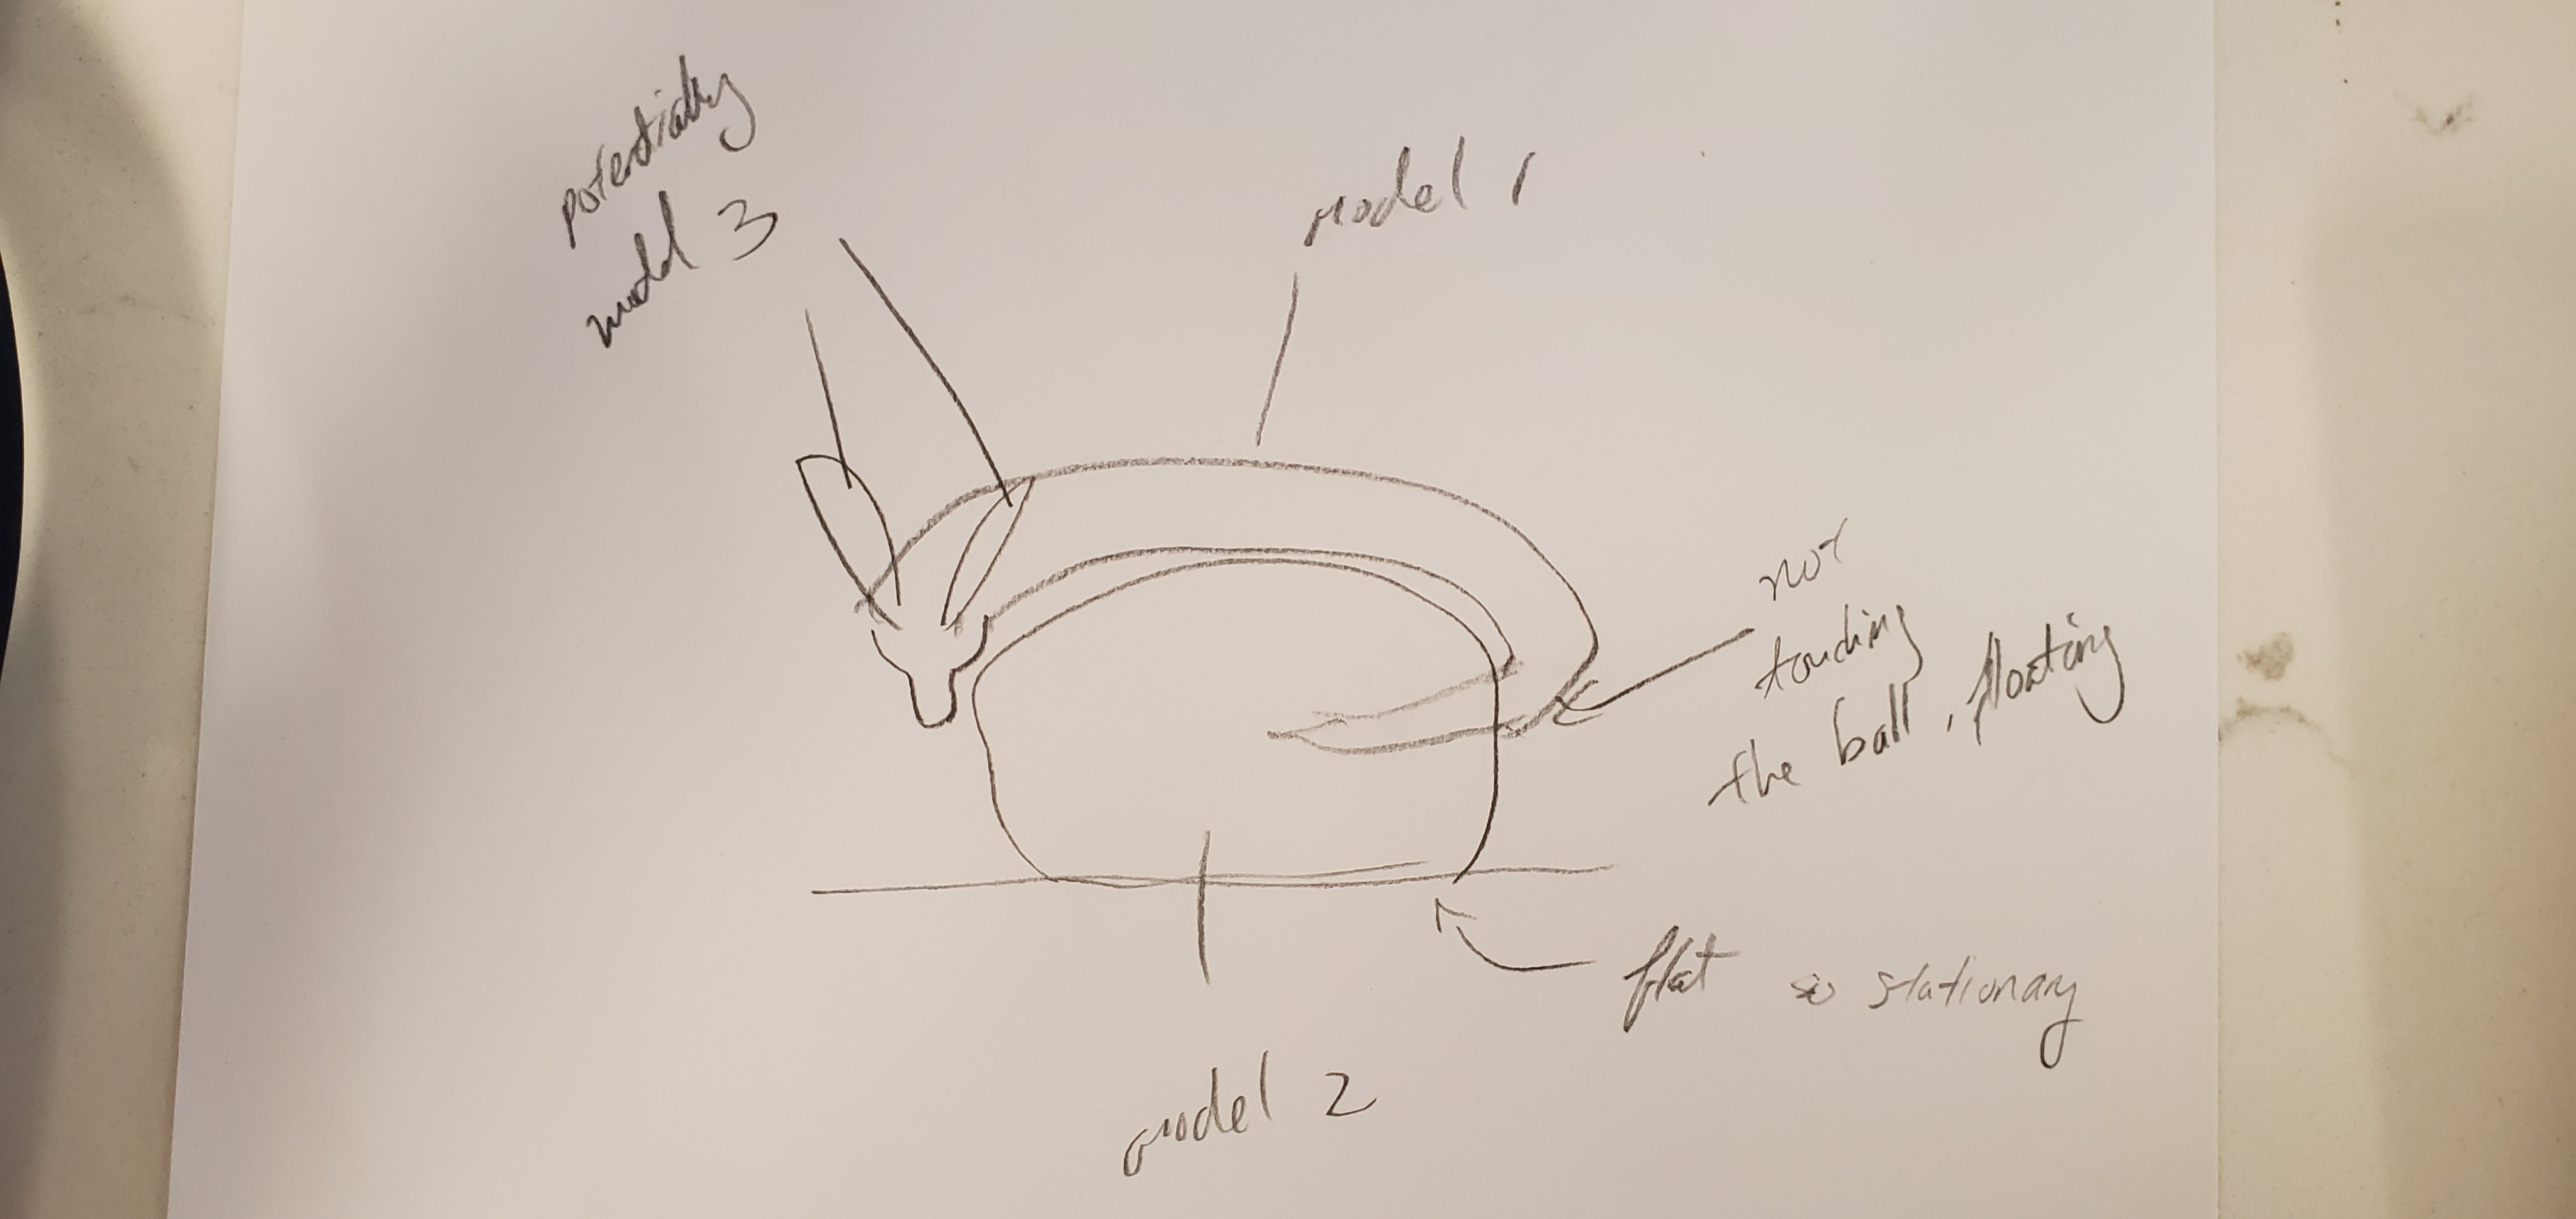 potentially
model 3
model 1
not
touching
the ball, floating
flat so stationary
model 2